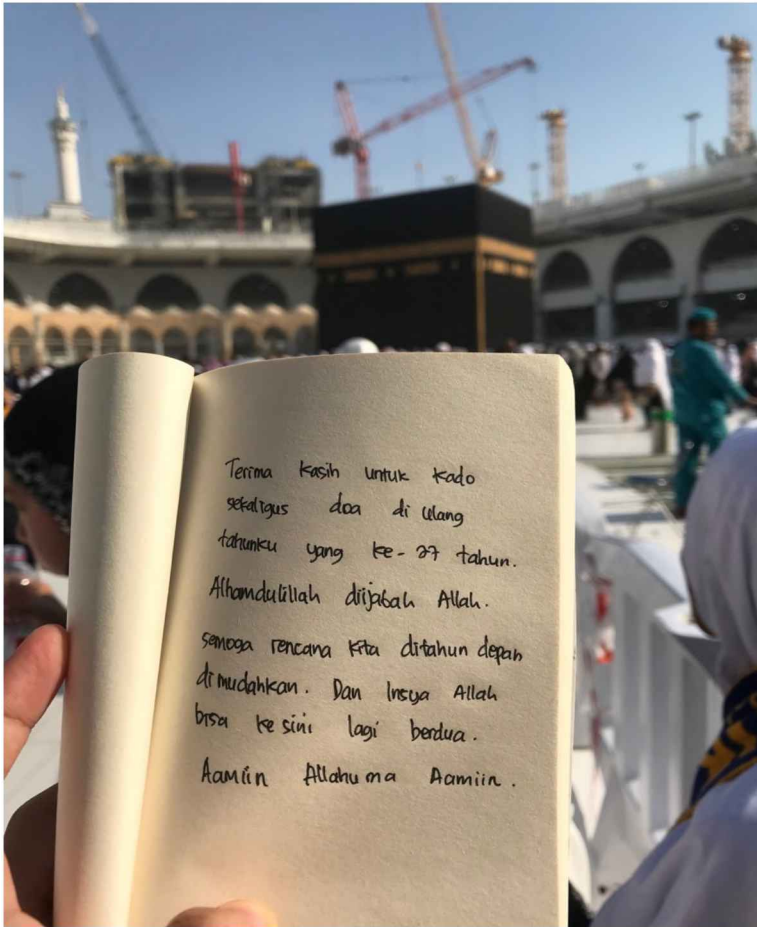 Terima kasih untuk kado
sekaligus doa di ulang
tahunku yang ke-27 tahun.
Alhamdulillah diijabah Allah.
semoga rencana kita ditahun depan
dimudahkan. Dan Insya Allah
bisa kesini lagi berdua.
Aamiin Allahuma Aamiin.